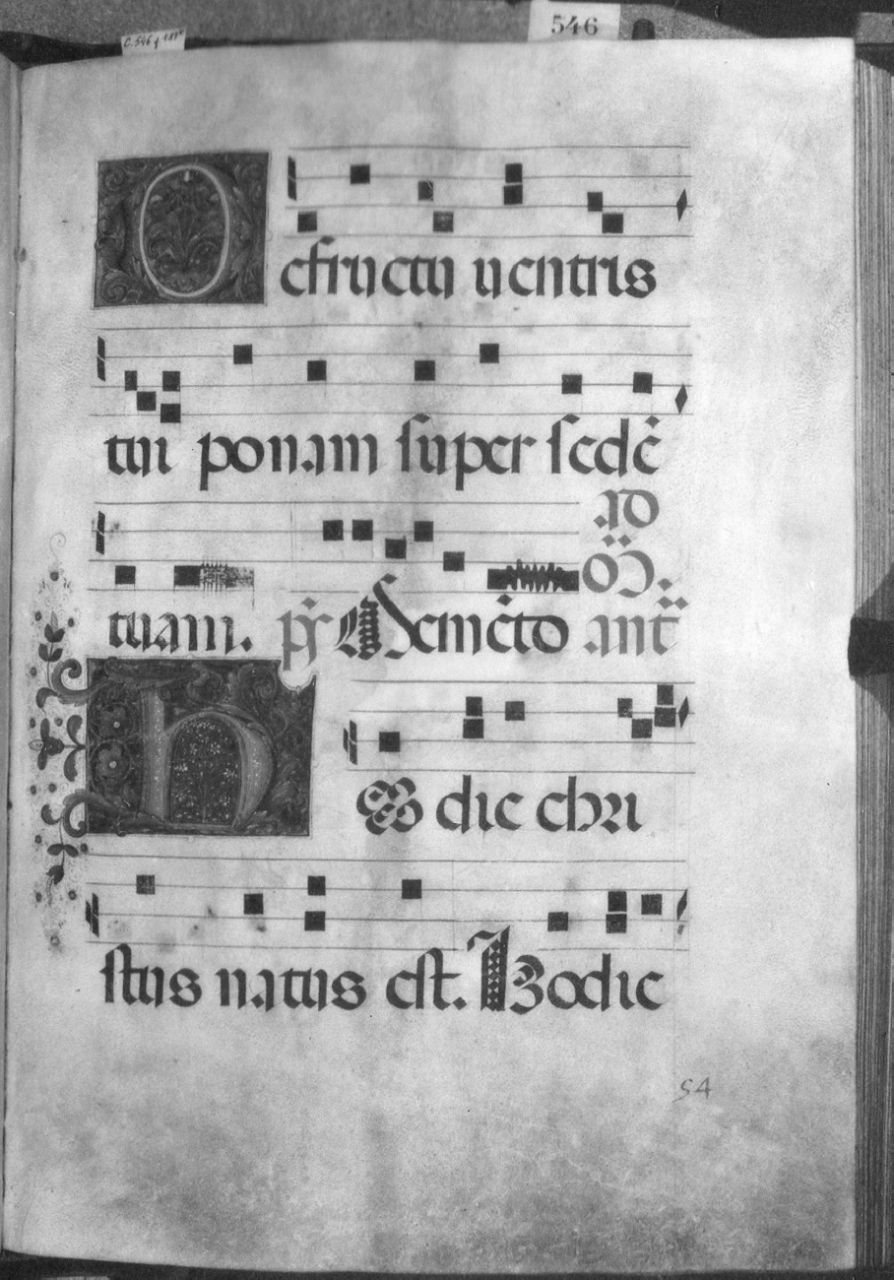 546
De fructu uentris
tui ponam super sedē
ad
tuam. ps̄ Memēto
oɔ̄. ant̄
Hodie chri
stus natus est. Hodie
54